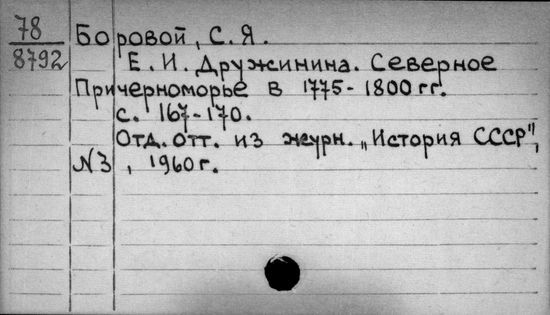 78
8792
Боровой, С. Я.
Е. И. Дружинина. Северное
Причерноморье в 1775-1800 гг.
с. 167-170.
Отд. отт. из журн. „История СССР",
№3, 1960 г.